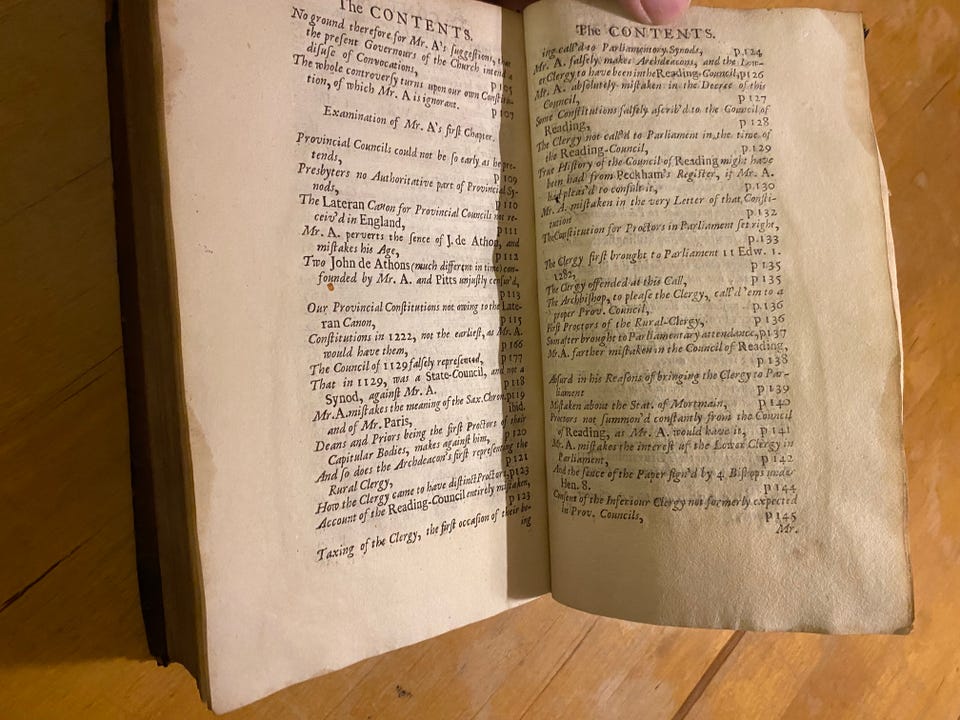 The CONTENTS.
No ground therefore for Mr. A's suggestions, that
the present Governours of the Church intend a
disuse of Convocations, p 105
The whole controversy turns upon our own Constitu-
tion, of which Mr. A is ignorant. p 107
Examination of Mr. A's first Chapter.
Provincial Councils could not be so early as he pre-
tends, p 109
Presbyters no Authoritative part of Provincial Sy-
nods, p 110
The Lateran Canon for Provincial Councils not re-
ceiv'd in England, p 111
Mr. A. perverts the sence of J. de Athon, and
mistakes his Age, p 112
Two John de Athons (much different in time) con-
founded by Mr. A and Pitts unjustly censur'd,
p 113
Our Provincial Constitutions not owing to the Late-
ran Canon, p 115
Constitutions in 1222, not the earliest, as Mr. A.
would have them, p 166
The Council of 1129 falsely represented, p 177
That in 1129, was a State-Council, and not a
Synod, against Mr. A. p 118
Mr. A. mistakes the meaning of the Sax. Chron. p 119
and of Mr. Paris, ibid.
Deans and Priors being the first Proctors of their
Capitular Bodies, makes against him, p 120
And so does the Archdeacon's first representing the
Rural Clergy, p 121
How the Clergy came to have distinct Proctors, p 123
Account of the Reading-Council entirely mistaken,
p 123
Taxing of the Clergy, the first occasion of their be-
ing
The CONTENTS.
ing call'd to Parliamentory Synods, p. 124
Mr. A. falsely makes Archdeacons, and the Low-
er Clergy to have been in the Reading-Council, p 126
Mr. A. absolutely mistaken in the Decree of this
Council, p 127
Some Constitutions falsely ascrib'd to the Council of
Reading, p 128
The Clergy not call'd to Parliament in the time of
the Reading-Council, p 129
True History of the Council of Reading might have
been had from Peckham's Register, if Mr. A.
had pleas'd to consult it, p. 130
Mr. A. mistaken in the very Letter of that Consti-
tution p. 132
The Constitution for Proctors in Parliament set right,
p. 133
The Clergy first brought to Parliament 11 Edw. 1.
1282, p. 135
The Clergy offended at this Call, p. 135
The Archbishop, to please the Clergy, call'd 'em to a
proper Prov. Council, p. 136
First Proctors of the Rural-Clergy, p 136
Sun after brought to Parliamentary attendance, p 137
Mr. A. farther mistaken in the Council of Reading,
p 138
Absurd in his Reasons of bringing the Clergy to Par-
liament p 139
Mistaken about the Stat. of Mortmain, p 140
Proctors not summon'd constantly from the Council
of Reading, as Mr. A. would have it, p 141
Mr. A. mistakes the interest of the Lower Clergy in
Parliament, p 142
And the sence of the Paper sign'd by 4 Bishops under
Hen. 8. p 144
Consent of the Inferiour Clergy not formerly expected
in Prov. Councils, p 145
Mr.